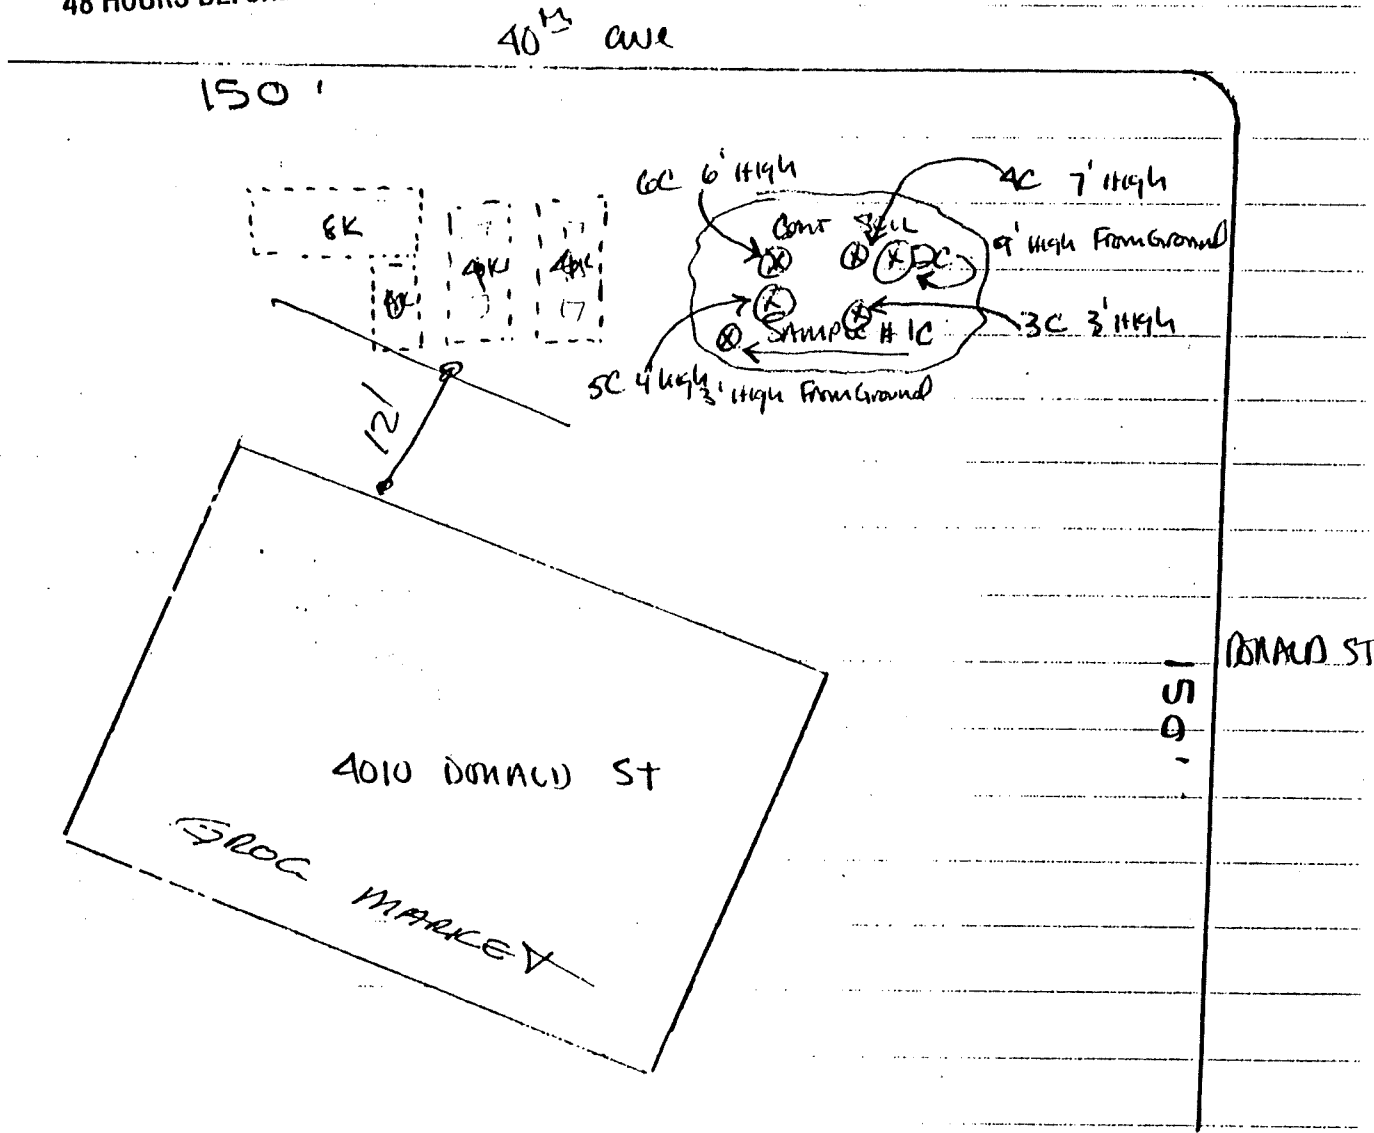 48 HOURS
40th ave
150'
6C 6' High
4C 7' High
8K
Cont Soil
9' High From Ground
8K
SAMPLE # 1C
3C 3' High
5C 4' High
3' High From Ground
12'
DONALD ST
150'
4010 DONALD ST
GROC MARKET